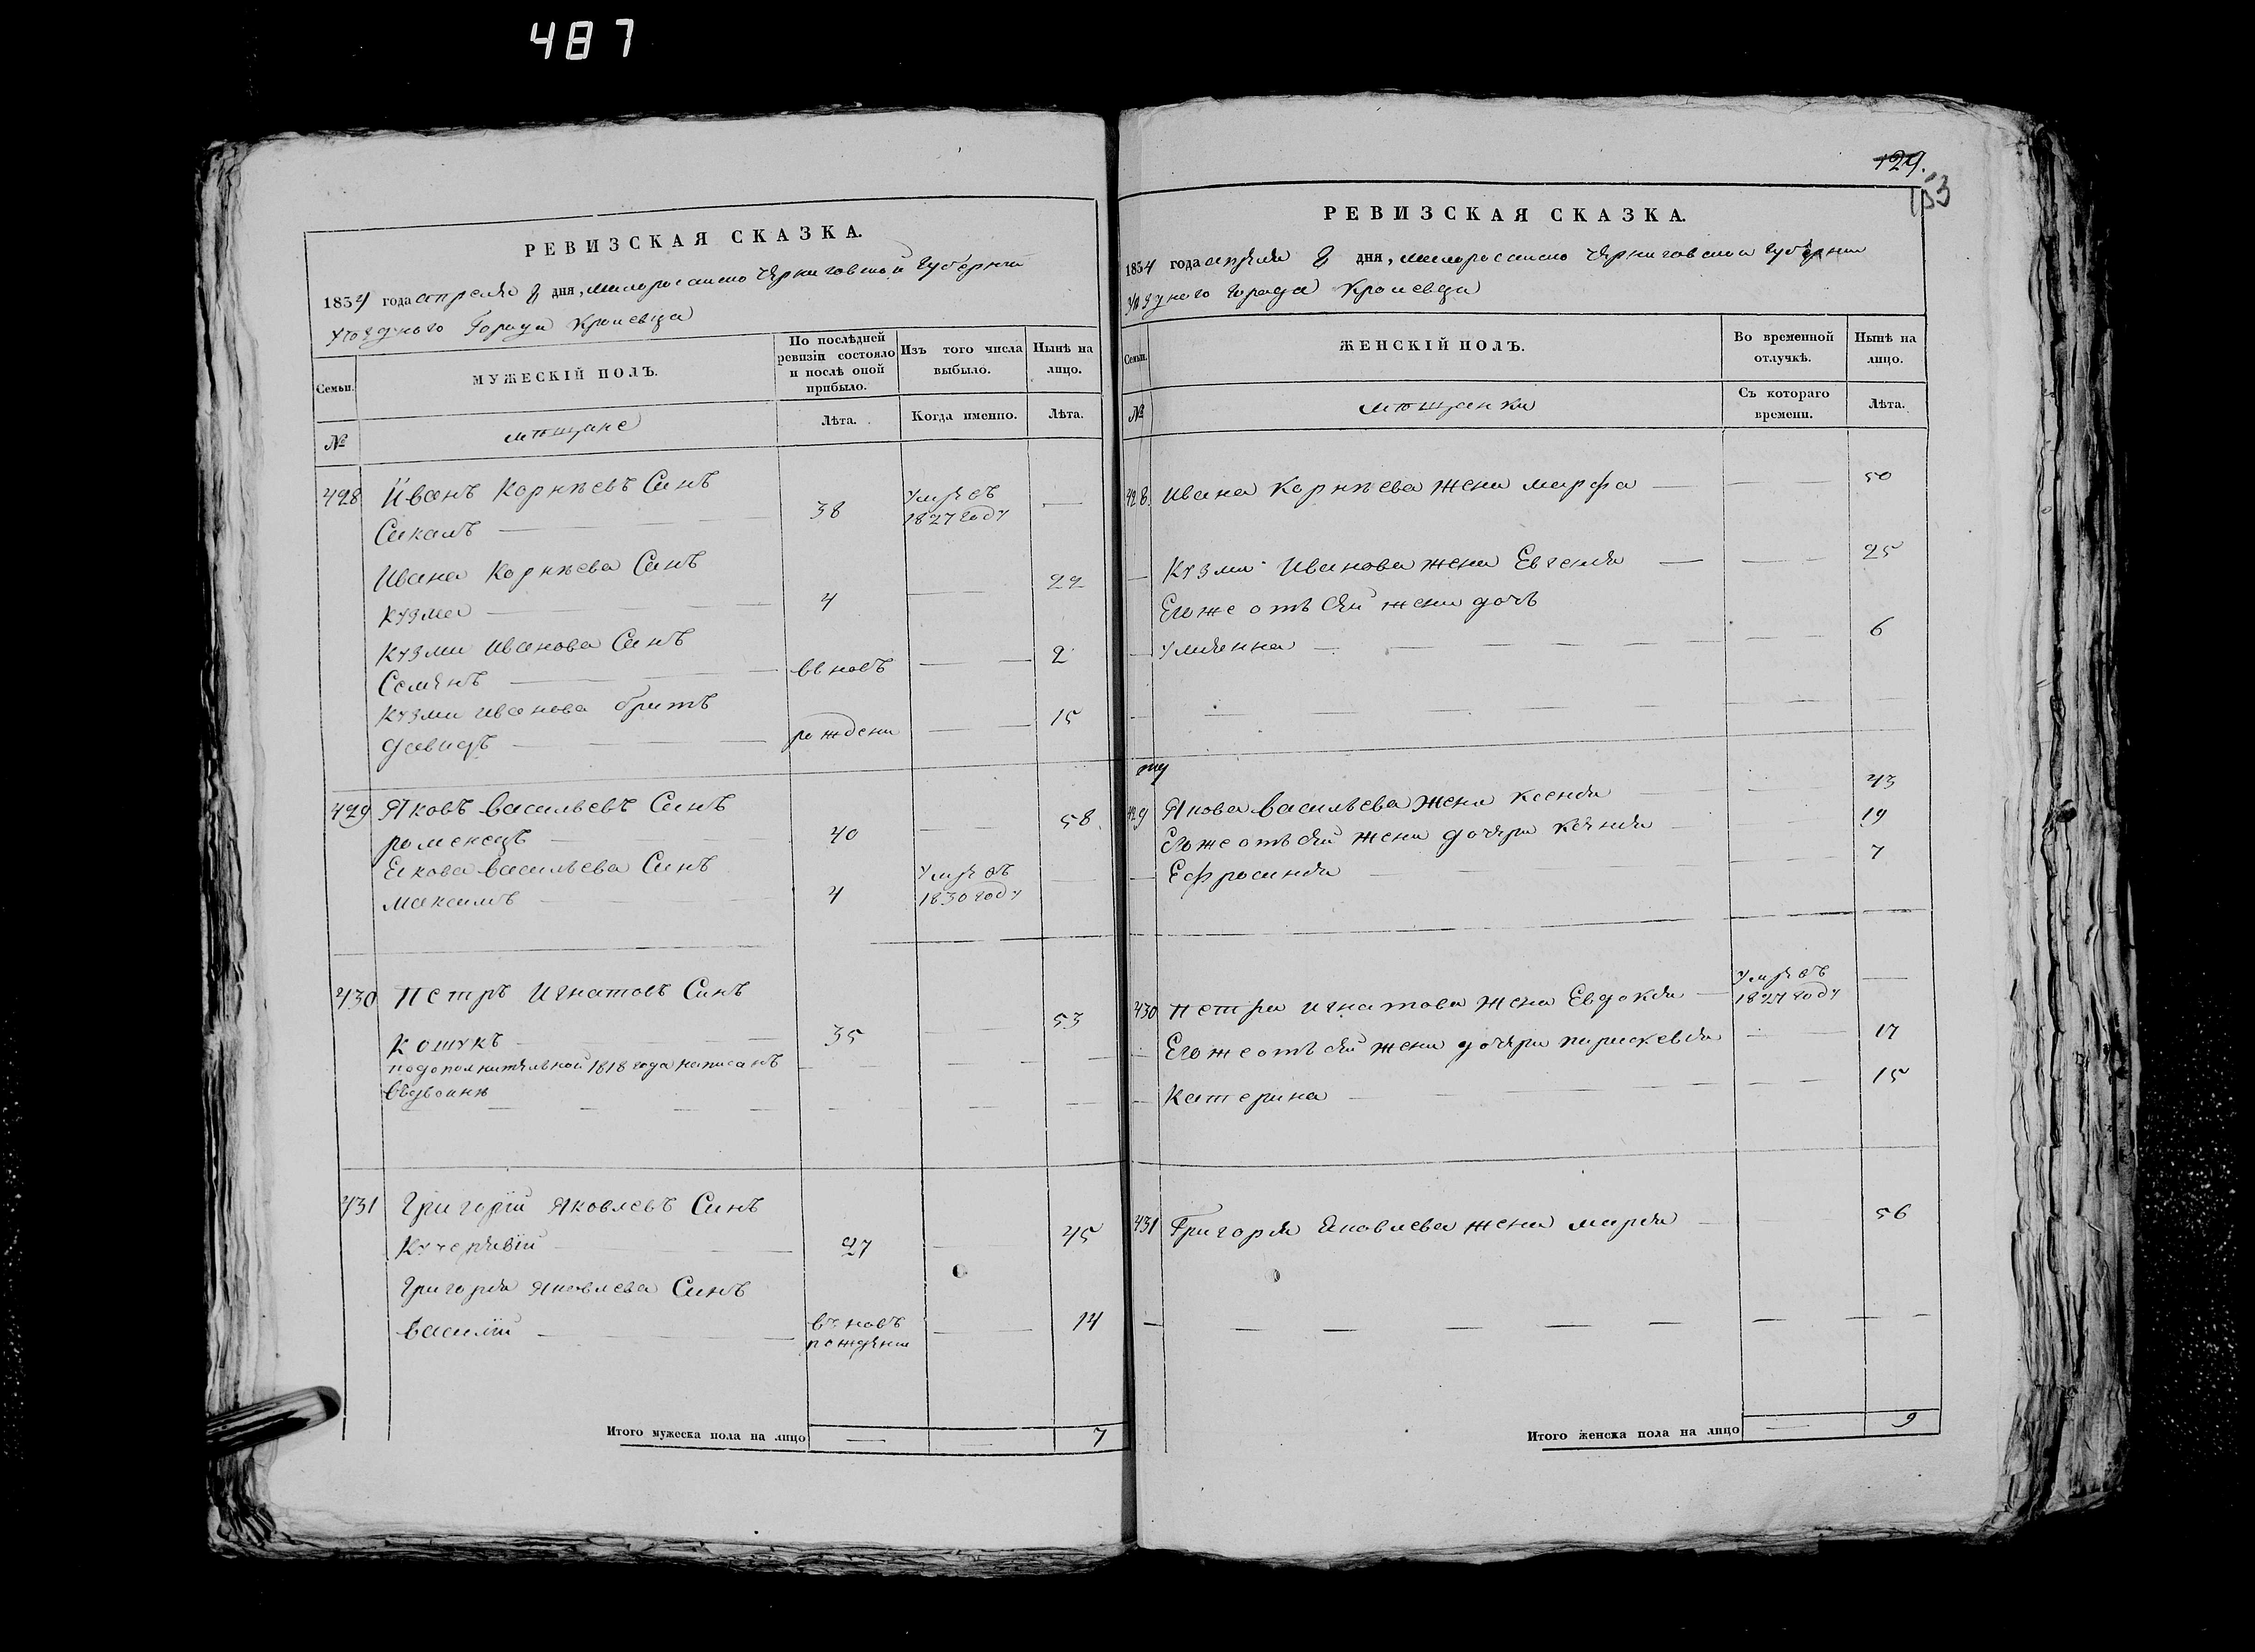 487
РЕВИЗСКАЯ СКАЗКА.
1834 года апреля 8 дня, малоросийско Черниговской Губернии
уезднаго Города Кролевца
Семьи.
МУЖЕСКІЙ ПОЛЪ.
По послѣдней ревизіи состояло и послѣ оной прибыло.
Изъ того числа выбыло.
Нынѣ на лицо.
№
мѣщане
Лѣта.
Когда именно.
Лѣта.
428 Иванъ Корнѣевъ Синъ
Сикалъ — 38 умре въ 1827 году —
Ивана Корнѣева Синъ
Кузма — 4 — 22
Кузми Иванова Синъ
Семенъ — вновъ — 2
Кузми Иванова братъ
Давидъ — рождени — 15
429 Яковъ Васильевъ Синъ
роменецъ — 40 — 58
Якова Васильева Синъ
Максимъ — 4 умре въ 1830 году —
430 Петръ Игнатовъ Синъ
Кошукъ — 35 — 53
подополнительной 1818 года написанъ
вдвойне
431 Григорій Яковлевъ Синъ
Кучерявій — 27 — 45
Григорія Яковлева Синъ
Василій — въновъ рождени — 14
Итого мужеска пола на лицо — — 7
129.
153
РЕВИЗСКАЯ СКАЗКА.
1834 года апреля 8 дня, малоросийско Черниговской Губернии
уезднаго Города Кролевца
Семьи.
ЖЕНСКІЙ ПОЛЪ.
Во временной отлучкѣ.
Нынѣ на лицо.
№
мѣщанки
Съ котораго времени.
Лѣта.
428 Ивана Корнѣева жена марфа — — 50
— Кузми Иванова жена Евгенія — — 25
Егоже отъ сей жени дочъ
— улияна — — 6
429 Якова Васильева жена ксенія — 43
Егоже отъ сей жени дочери ксенія — 19
— Ефросинія — — 7
430 Петра игнатова жена Евдокія — умре въ 1827 году —
— Егоже отъ сей жени дочери параскевія — 17
— Катерина — — 15
431 Григорія Яковлева жена марія — 56
Итого женска пола на лицо — 9